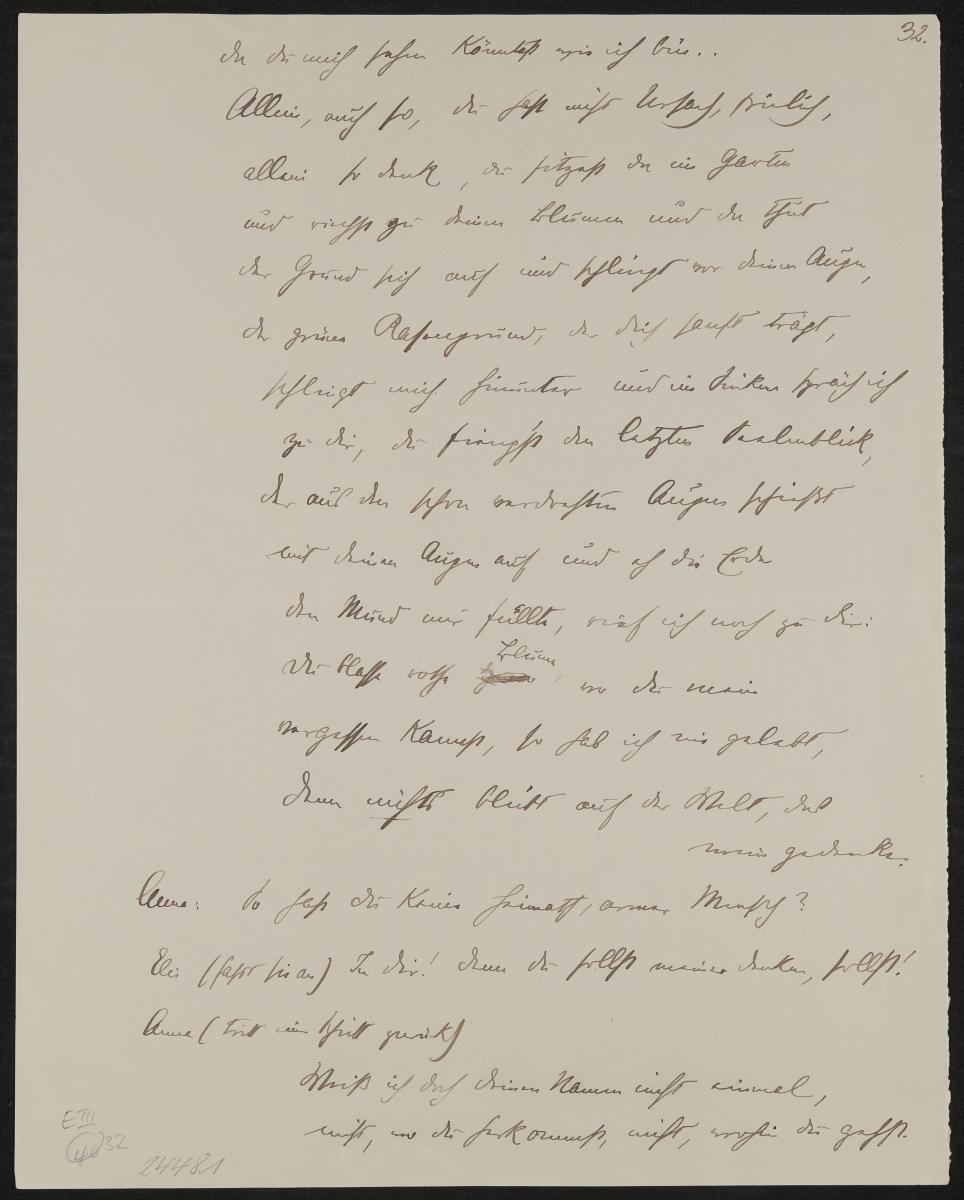 32.
da du mich sehen könntest wie ich bin..
Allein, auch so, du hast nicht Ursach, freilich,
allein so denk, du sitzest da im Garten
und riechst zu deinen Blumen und da thut
der Grund sich auf und schlingt vor deinen Augen,
der grüne Rasengrund, der dich sanft trägt,
schlingt mich hinunter und im Sinken spräch ich
zu dir, du fiengst den letzten Seelenblick,
der aus den schon verdrehten Augen schießt
mit deinen Augen auf und eh die Erde
den Mund mir füllte, rief ich noch zu dir:
Du blasse rothe Blume, wo du mein
vergessen kannst, so hab ich nie gelebt,
denn nichts bleibt auf der Welt, das
mein gedenke.
Anna: So hast du keine Heimath, armer Mensch?
Elis (faßt sie an) In dir! denn du sollst meiner denken, sollst!
Anna (tritt einen Schritt zurück)
Weiß ich doch deinen Namen nicht einmal,
nicht, wo du herkommst, nicht, wohin du gehst.
E III
40 32
24481